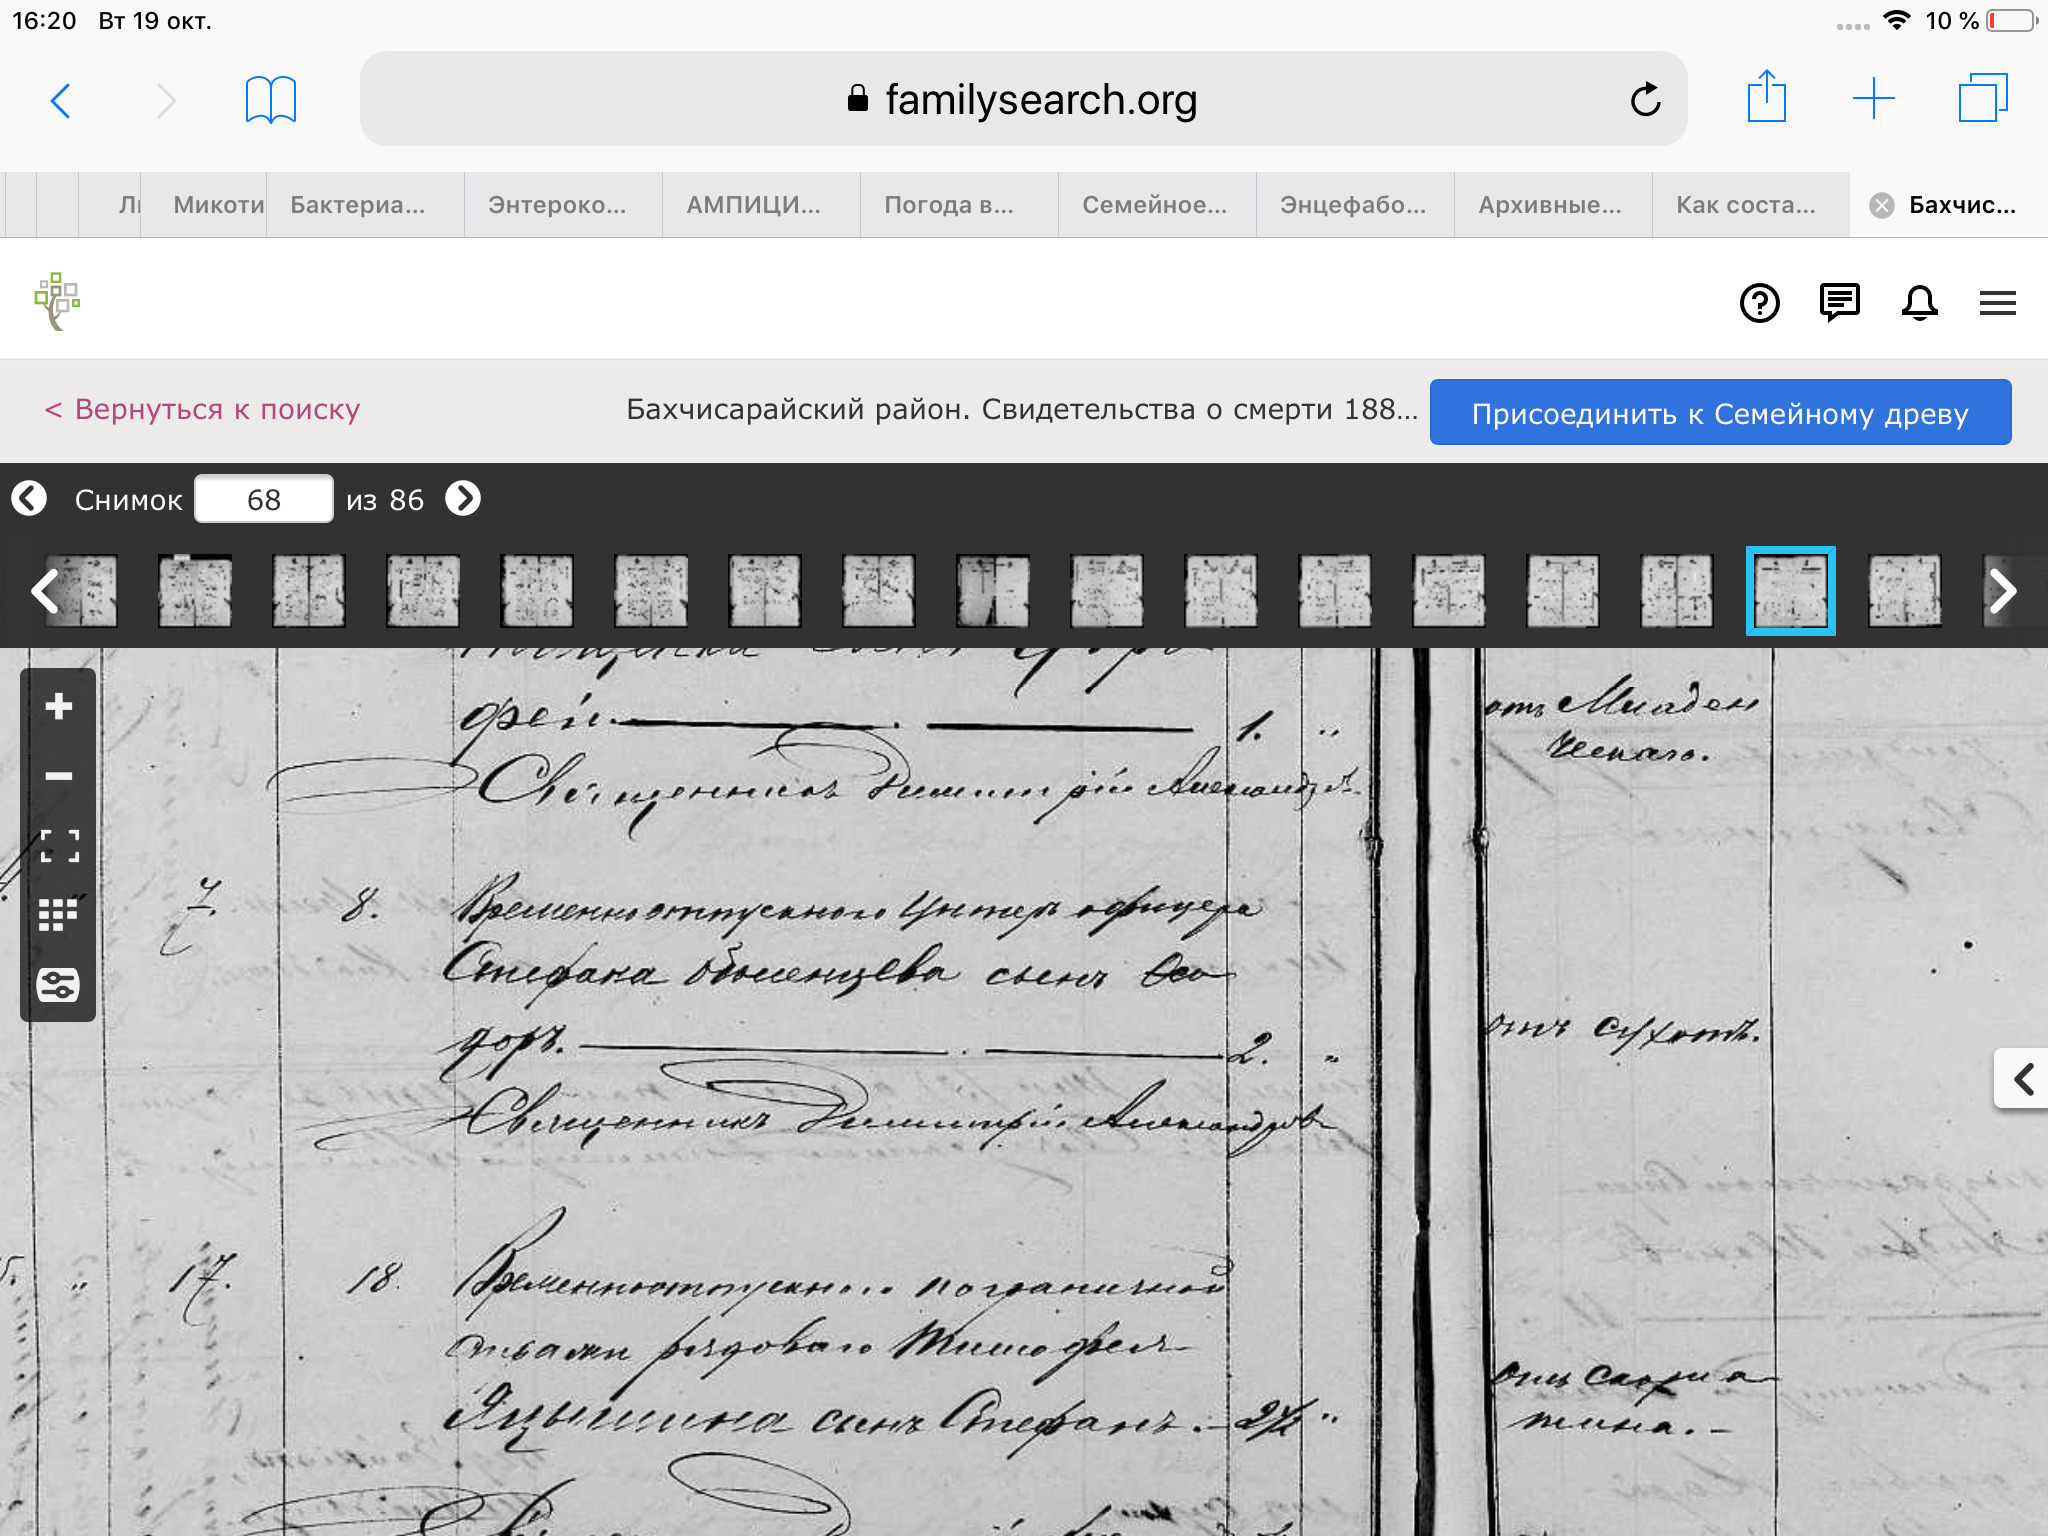 16:20 Вт 19 окт. 10 %
familysearch.org
Микоти Бактериа... Энтероко... АМПИЦИ... Погода в... Семейное... Энцефабо... Архивные... Как соста... Бахчис...
< Вернуться к поиску Бахчисарайский район. Свидетельства о смерти 188... Присоединить к Семейному древу
Снимок 68 из 86
фей. 1. „ отъ Младен
ческаго.
Священникъ Димитрій Александровъ
7. 8. Временноотпускного Унтеръ офицера
Стефана сынъ Ѳео
доръ. 2. „ отъ сухотъ.
Священникъ Димитрій Александровъ
„ 17. 18. Временноотпускного пограничной
стражи рядоваго Тимофея
сынъ Стефанъ. „ отъ скарла
тина.